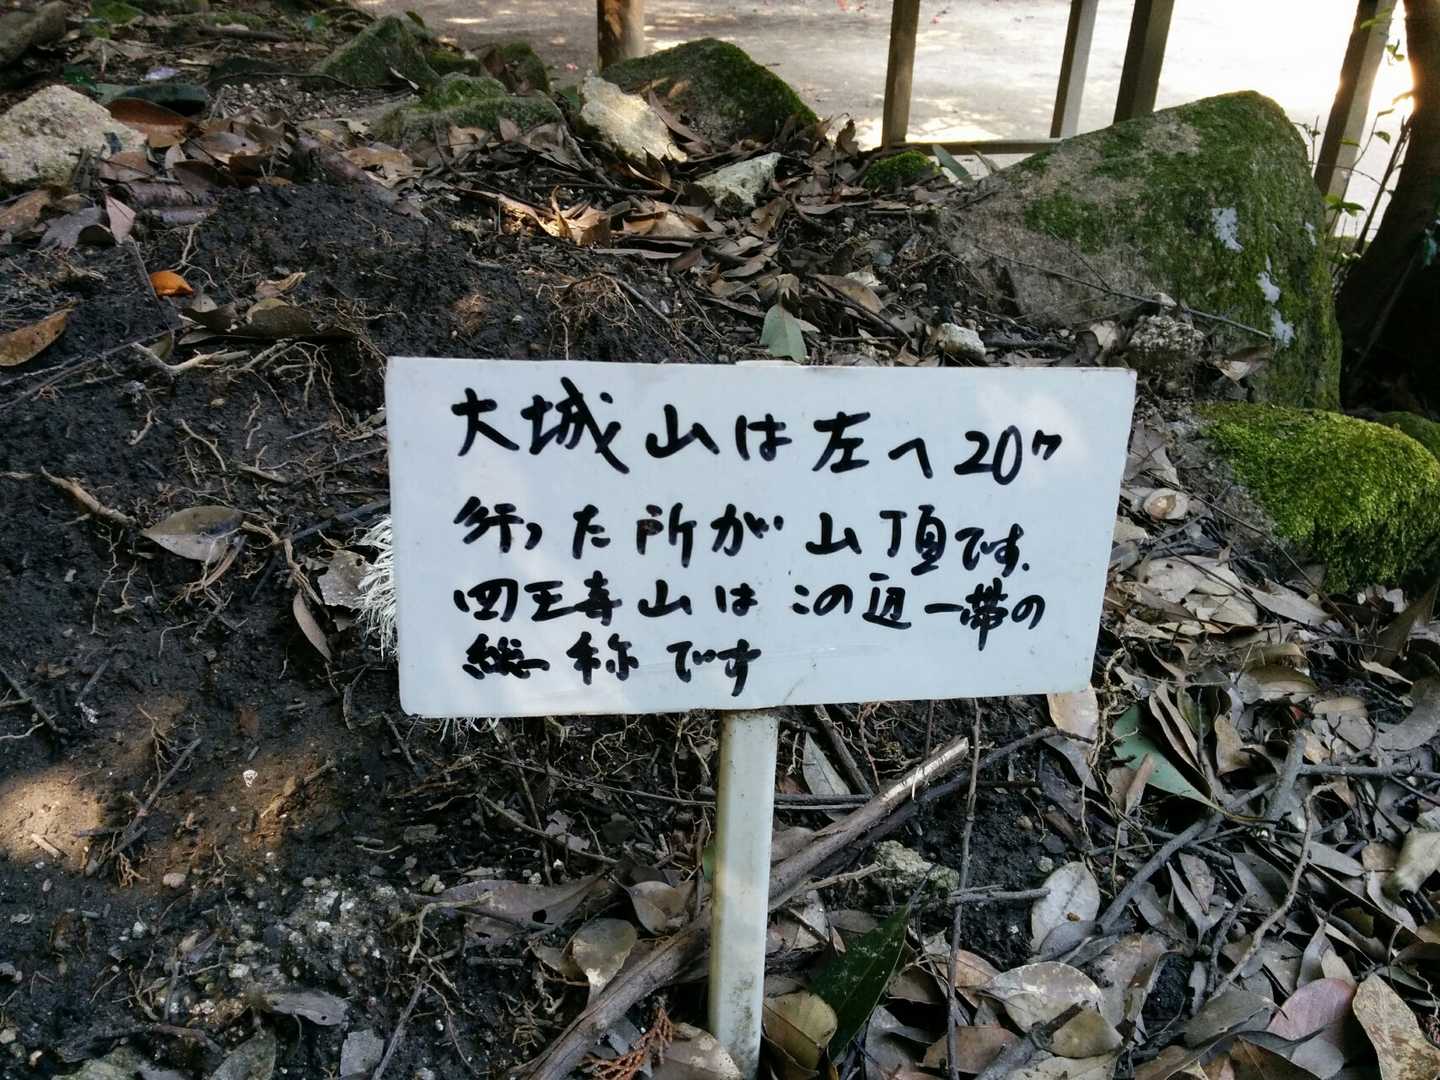 大城山は左へ20m
行った所が山頂です.
四王寺山はこの辺一帯の
総称です